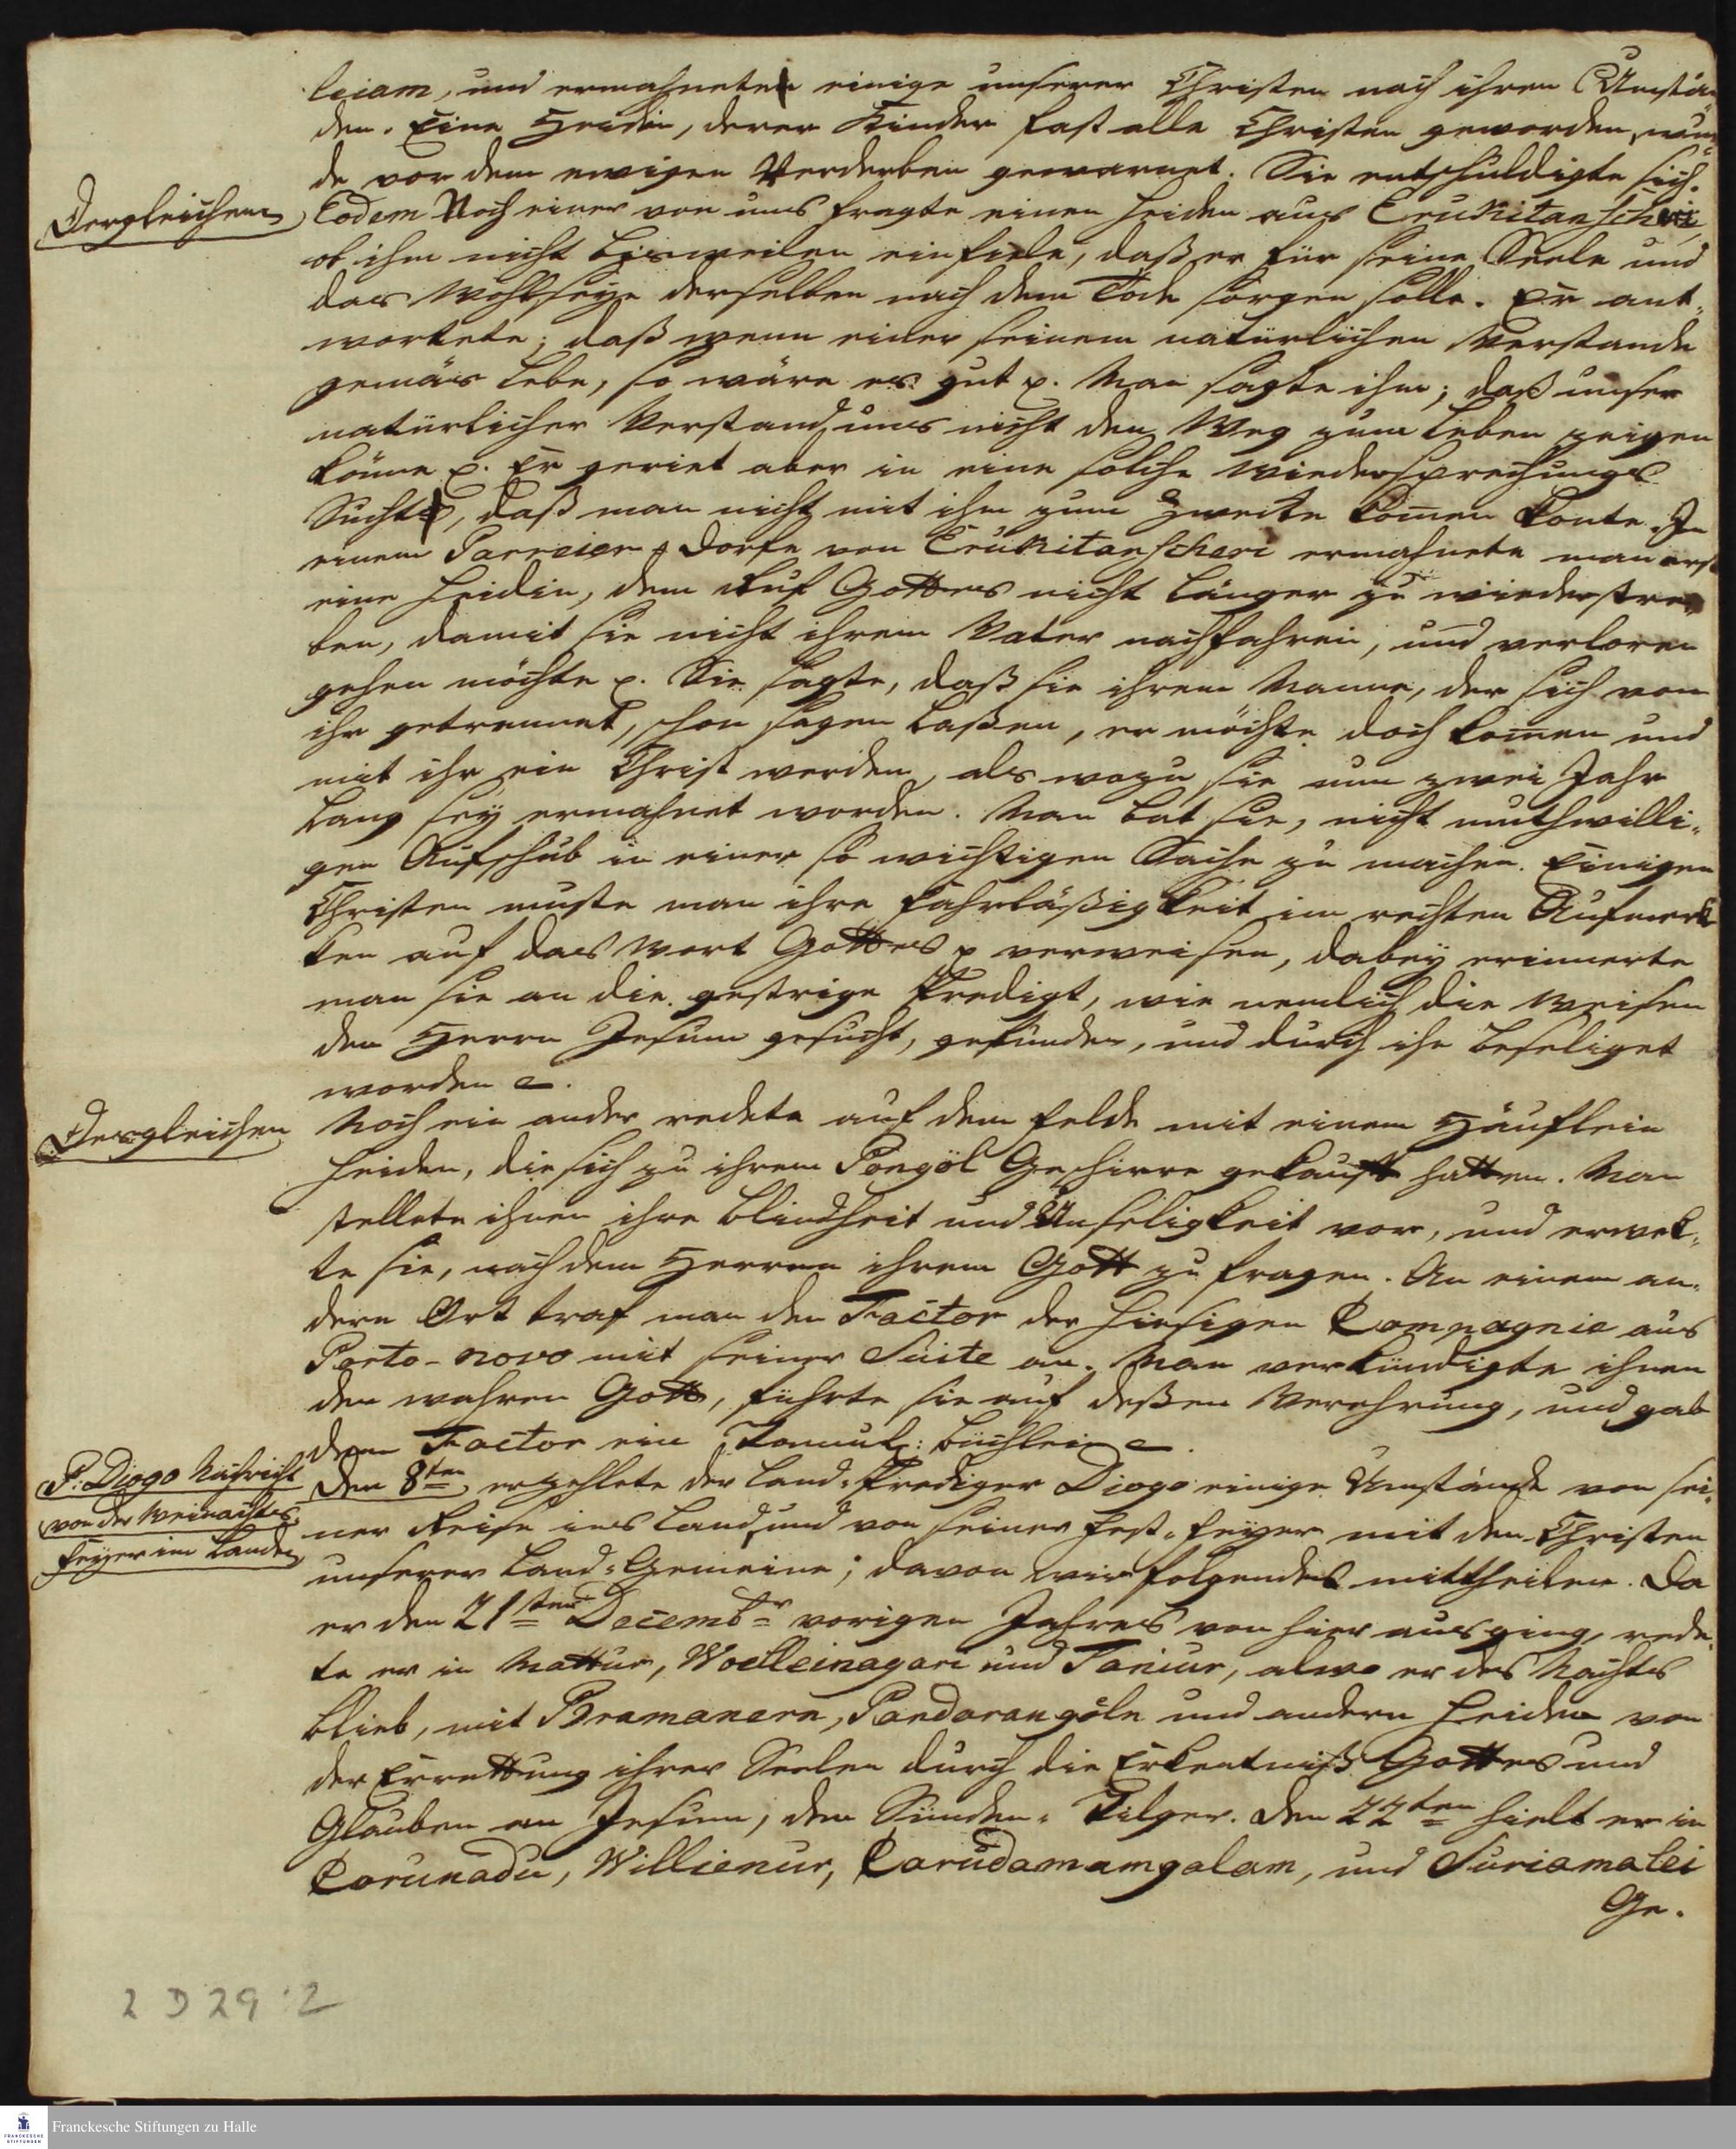 leiam, und ermahneten einige unserer Christen nach ihren Umstän
den. Eine Heidin, derer Kinder fast alle Christen geworden, wur
de vor dem ewigen Verderben gewarnet. Sie entschuldigte sich.
Dergleichen
Eodem Noch einer von uns fragte einen Heiden aus Erukitanscheri,
ob ihm nicht bisweilen einfiele, daß er für seine Seele und
das Wohlseyn derselben nach dem Tode sorgen solle. Er ant-
wortete; daß wenn einer seinem natürlichen Verstande
gemäs lebe, so wäre es gut p. Man sagte ihm; daß unser
natürlicher Verstand uns nicht den Weg zum Leben zeigen
könne p. Er geriet aber in eine solche Wiedersprechungs
Sucht, daß man nicht mit ihm zum Zweck komen konte. In
einem Parreier-Dorfe von Erukitanscheri ermahnete man erst
eine Heidin, dem Ruf Gottes nicht länger zu wiederstre-
ben, damit sie nicht ihrem Vater nachfahren, und verloren
gehen möchte p. Sie sagte, daß sie ihrem Manne, der sich von
ihr getrennet, schon sagen laßen, er möchte doch komen und
mit ihr ein Christ werden, als wozu sie nun zwei Jahr
lang sey ermahnet worden. Man bat sie, nicht muthwilli-
gen Aufschub in einer so wichtigen Sache zu machen. Einigen
Christen muste man ihre Fahrläßigkeit im rechten Aufmerk
ken auf das Wort Gottes p verweisen, dabey erinnerte
man sie an die gestrige Predigt, wie nemlich die Weisen
den Herrn Jesum gesucht, gefunden, und durch ihn beseliget
worden p.
Desgleichen
Noch ein ander redete auf dem Felde mit einem Häuflein
Heiden, die sich zu ihrem Pongöl Geschirre gekauft hatten. Man
stellete ihnen ihre Blindheit und Unseligkeit vor, und erwek-
te sie, nach dem Herren ihrem Gott zu fragen. An einem an-
dern Ort traf man den Factor der hiesigen Compagnie aus
Porto-novo mit seiner Suite an. Man verkündigte ihnen
den wahren Gott, führte sie auf deßen Verehrung, und gab
dem Factor ein Tamul: Büchlein p.
P: Diogo Nachricht
von der Weinachts-
Feyer im Lande
Den 8ten erzehlete der Land-Prediger Diogo einige Umstände von sei-
ner Reise ins Land, und von seiner Fest-Feyer mit den Christen
unserer Land-Gemeine; davon wir folgendes mittheilen. Da
er den 21sten Decembr vorigen Jahres von hier ausging, rede-
te er in Nattur, Woelleinagari und Taniur, alwo er des Nachts
blieb, mit Bramanern, Pandarangöln und andern Heiden von
der Errettung ihrer Seelen durch die Erkentniß Gottes und
Glauben an Jesum, den Sünden-Tilger. Den 22ten hielt er in
Corunadu, Willienur, Carudamamgalam, und Suriamalei
Ge-
2 D 29 : 2
Franckesche Stiftungen zu Halle